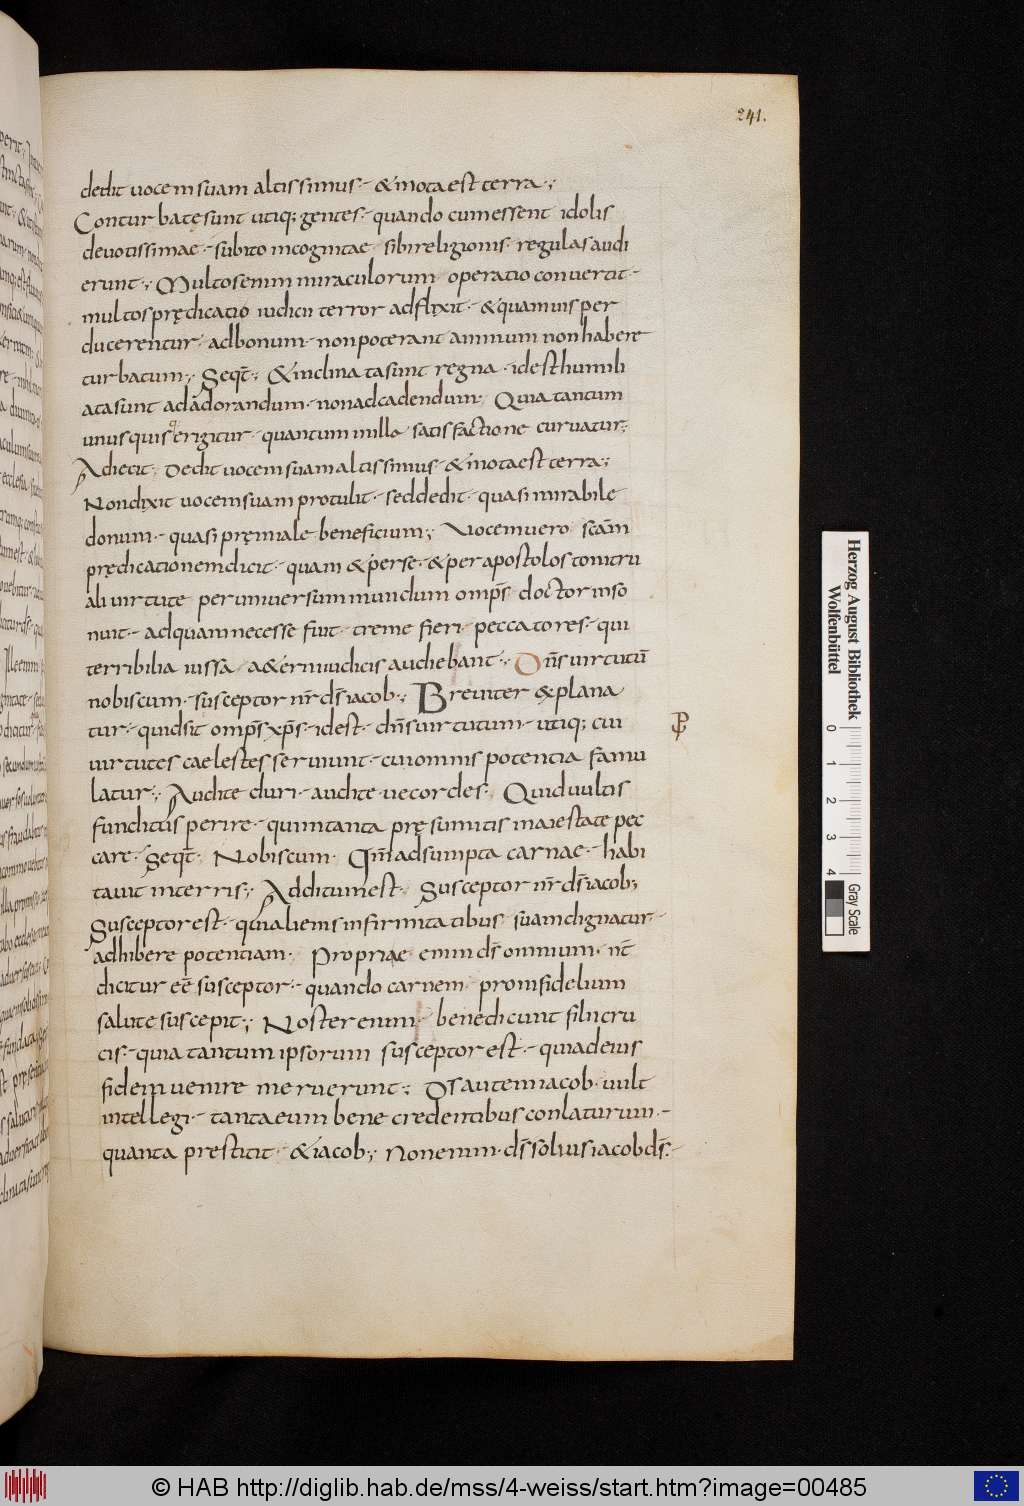 241.
dedit uocem suam altissimus·- & mota est terra·;
Conturbatę sunt utiq; gentes·- quando cum essent idolis
deuotissimae·- subito incognitae·- sibi religionis·- regulas audi
erunt·; Multos enim miraculorum operatio conuertit·-
multos prędicatio iudicii terror adflixit·- & quamuis per
ducerentur· ad bonum·- non poterant animum non habere
turbatum·; Seqt̄·; & inclinata sunt regna· id est humili
ata sunt ad adorandum·- non ad cadendum· Quia tantum
unusquisq; erigitur· quantum in illa· satisfactione curuatur·;
Adiecit·; Dedit uocem suam altissimus·- & mota est terra·;
Non dixit uocem suam protulit·- sed dedit·- quasi mirabile
donum·- quasi pręmiale beneficium·; Vocem uero scām
prędicationem dicit·- quam & per se·- & per apostolos tonitru
ali uirtute per uniuersum mundum omps̄ doctor inso
nuit·- ad quam necesse fuit·- tremefieri· peccatores·- qui
terribilia iussa a&erni iudicis audiebant·; Dn̄s uirtutū
nobiscum·- susceptor nr̄ ds̄ iacob·; Breuiter explana
tur·- quid sit omps̄ xp̄s·- id est·- dn̄s uirtutum·- utiq; cui
uirtutes caelestes seruiunt·- cui omnis potentia famu
latur·; Audite duri·- audite uecordes· Quid uultis
funditus perire·- qui in tanta pręsumitis maiestate pec
care· Seqt̄· Nobiscum· Qm̄ adsumpta carnae·- habi
tauit in terris·; Additum est· Susceptor nr̄ ds̄ iacob;
Susceptor est·- qui alienis infirmitatibus suam dignatur·-
adhibere potentiam· Propriae enim ds̄ omnium· nt̄
dicitur eē susceptor·- quando carnem pro infidelium
salute suscepit·; Noster enim· benedicunt filii cru
cis·- quia tantum ipsorum susceptor est·- qui ad eius
fidem uenire meruerunt·; Ds̄ autem iacob· uult
intellegi·- tanta eum bene credentibus conlaturum·-
quanta prestitit·- & iacob·; Non enim· ds̄ solius iacob ds̄·-
Herzog August Bibliothek
Wolfenbüttel
0 1 2 3 4
Gray Scale
© HAB http://diglib.hab.de/mss/4-weiss/start.htm?image=00485